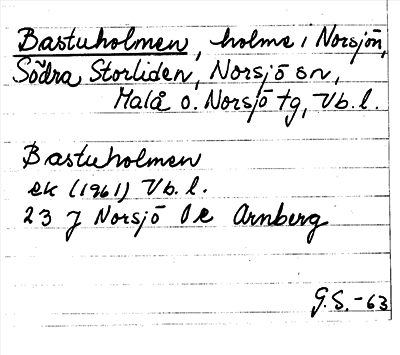 Bastuholmen, holme i Norsjön,
Södra Storliden, Norsjö sn,
Malå o. Norsjö tg, Vb. l.
Bastuholmen
ek (1961) Vb. l.
23 J Norsjö 0 e Arnberg
G.S. -63